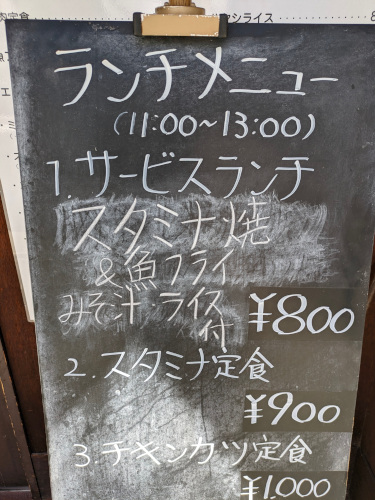 肉定食
ランチメニュー
(11:00~13:00)
1.サービスランチ
スタミナ焼
&魚フライ
みそ汁 ライス
付
¥800
2.スタミナ定食
¥900
3.チキンカツ定食
¥1,000